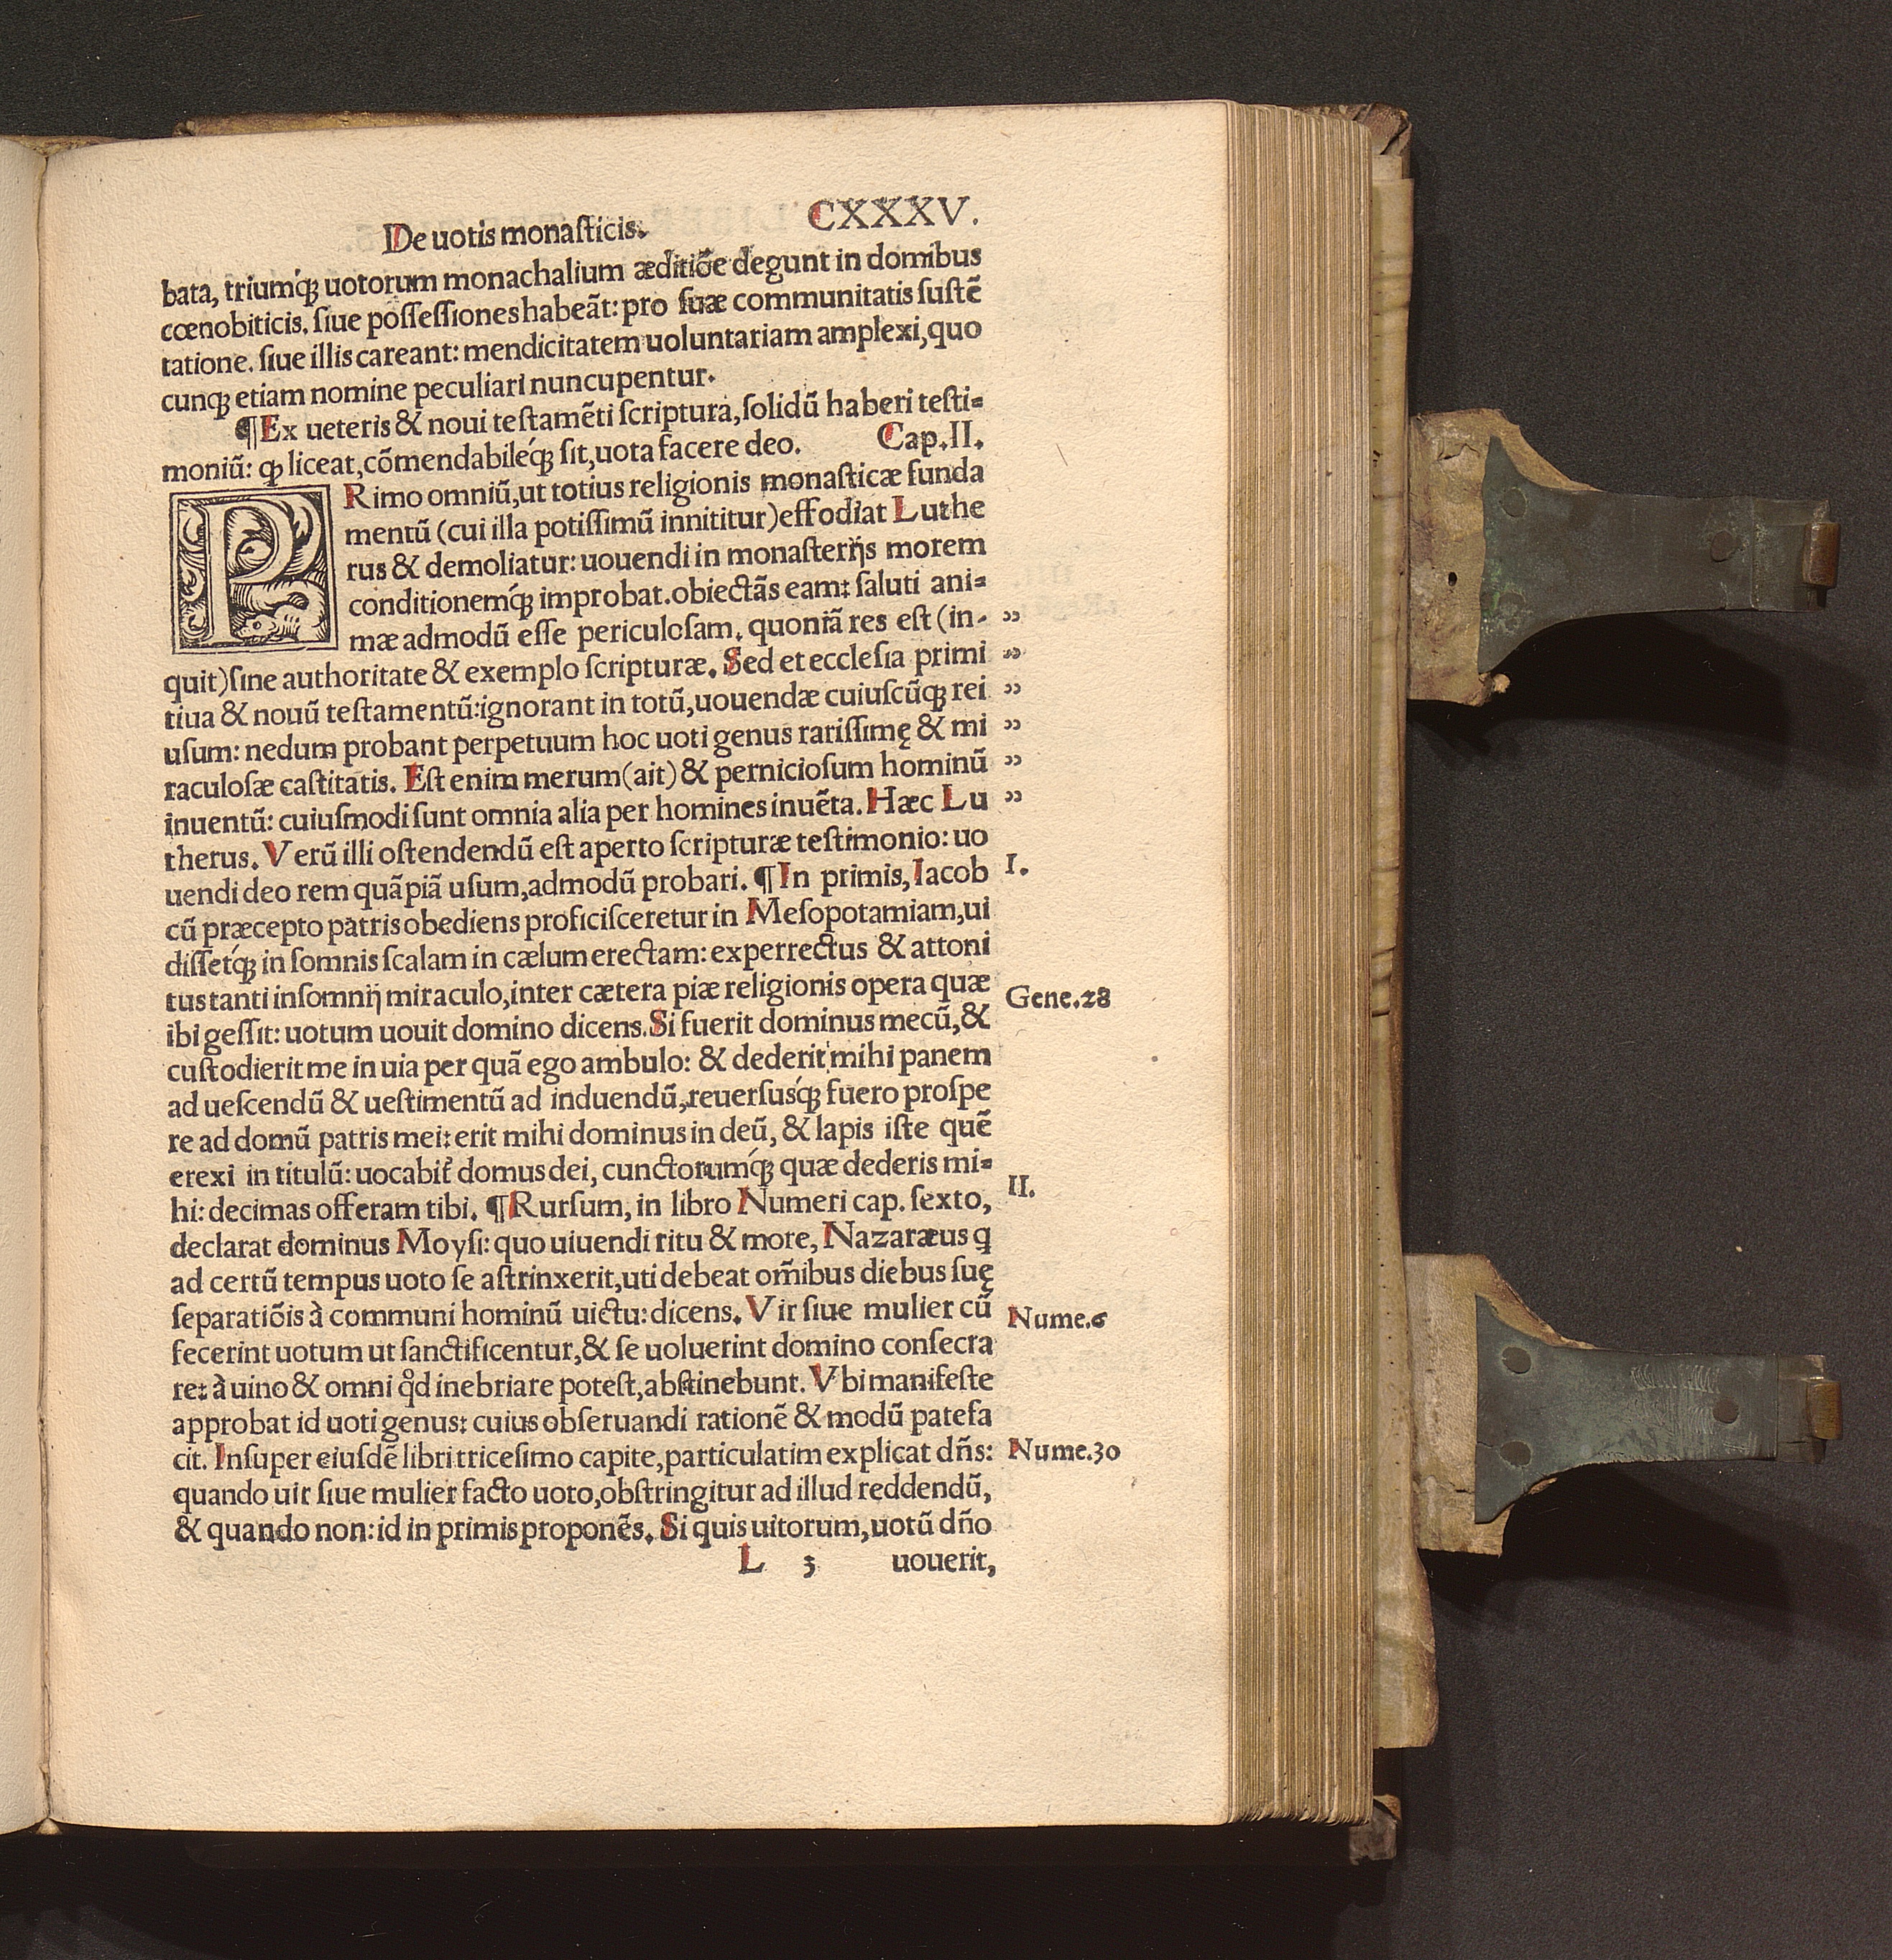 De uotis monaſticis. CXXXV.
bata, triumq́ꝫ uotorum monachalium æditiõe degunt in domibus
cœnobiticis. ſiue poſſeſſiones habeãt: pro ſuæ communitatis ſuſtẽ
tatione. ſiue illis careant: mendicitatem uoluntariam amplexi, quo
cunqꝫ etiam nomine peculiari nuncupentur.
¶Ex ueteris & noui teſtamẽti ſcriptura, ſolidũ haberi teſti=
moniũ: ꝙ liceat, cõmendabileq́ꝫ ſit, uota facere deo. Cap.II.
PRimo omniũ, ut totius religionis monaſticæ funda
mentũ (cui illa potiſſimũ innititur) effodiat Luthe
rus & demoliatur: uouendi in monaſterijs morem
conditionemq́ꝫ improbat. obiectãs eam: ſaluti ani=
mæ admodũ eſſe periculoſam. quoniã res eſt (in- ”
quit) ſine authoritate & exemplo ſcripturæ. Sed et eccleſia primi ”
tiua & nouũ teſtamentũ: ignorant in totũ, uouendæ cuiuſcũqꝫ rei ”
uſum: nedum probant perpetuum hoc uoti genus rariſſimę & mi ”
raculoſæ caſtitatis. Eſt enim merum (ait) & pernicioſum hominũ ”
inuentũ: cuiuſmodi ſunt omnia alia per homines inuẽta. Hæc Lu ”
therus. Verũ illi oſtendendũ eſt aperto ſcripturæ teſtimonio: uo
uendi deo rem quãpiã uſum, admodũ probari. ¶In primis, Iacob I.
cũ præcepto patris obediens proficiſceretur in Meſopotamiam, ui
diſſetq́ꝫ in ſomnis ſcalam in cælum erectam: experrectus & attoni
tus tanti inſomnij miraculo, inter cætera piæ religionis opera quæ
ibi geſſit: uotum uouit domino dicens. Si fuerit dominus mecũ, & Gene.28
cuſtodierit me in uia per quã ego ambulo: & dederit mihi panem
ad ueſcendũ & ueſtimentũ ad induendũ, reuerſusq́ꝫ fuero proſpe
re ad domũ patris mei: erit mihi dominus in deũ, & lapis iſte quẽ
erexi in titulũ: uocabit̃ domus dei, cunctorumq́ꝫ quæ dederis mi=
hi: decimas offeram tibi. ¶Rurſum, in libro Numeri cap. ſexto, II.
declarat dominus Moyſi: quo uiuendi ritu & more, Nazaræus q̃
ad certũ tempus uoto ſe aſtrinxerit, uti debeat om̃ibus diebus ſuę
ſeparatiõis à communi hominũ uictu: dicens. Vir ſiue mulier cũ Nume.6
fecerint uotum ut ſanctificentur, & ſe uoluerint domino conſecra
re: à uino & omni qͦd inebriare poteſt, abſtinebunt. Vbi manifeſte
approbat id uoti genus: cuius obſeruandi rationẽ & modũ patefa
cit. Inſuper eiuſdẽ libri triceſimo capite, particulatim explicat dñs: Nume.30
quando uir ſiue mulier facto uoto, obſtringitur ad illud reddendũ,
& quando non: id in primis proponẽs. Si quis uirorum, uotũ dño
L 3 uouerit,